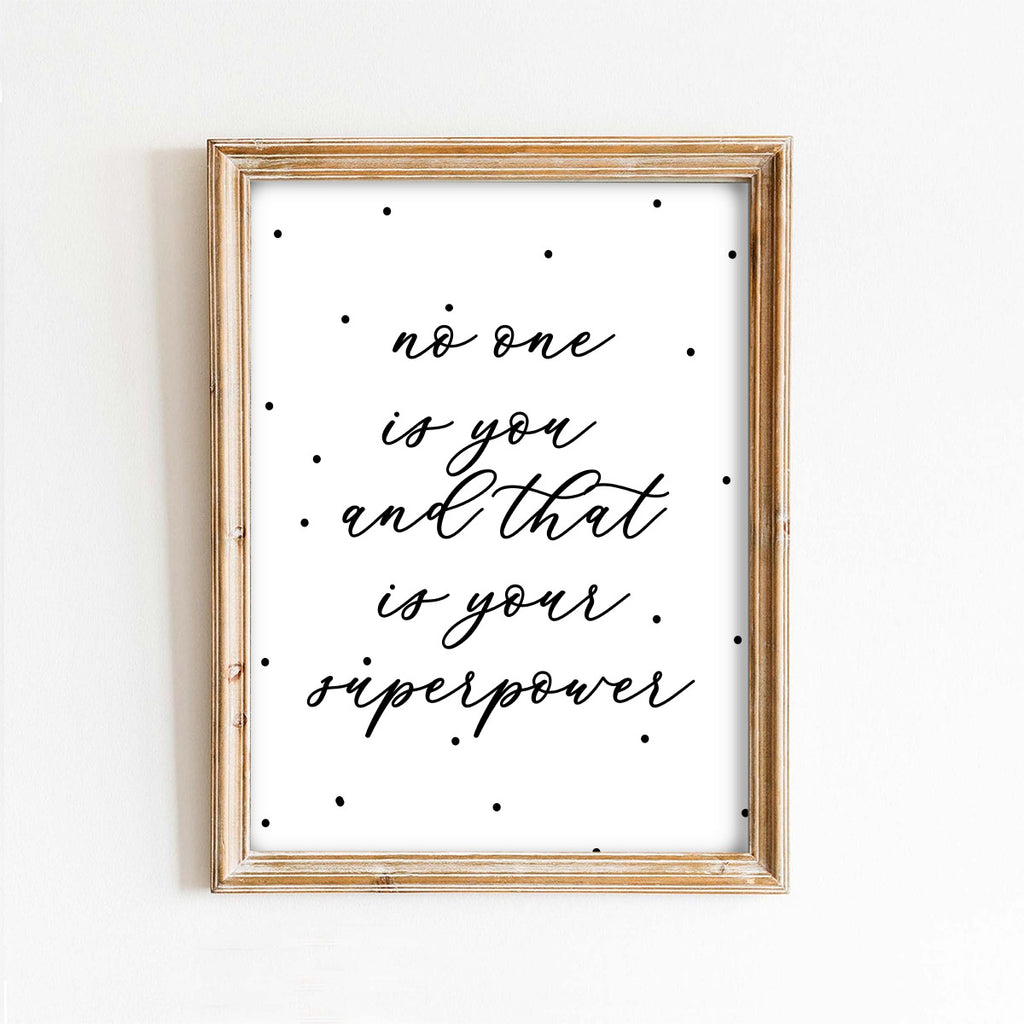 no one
is you
and that
is your
superpower